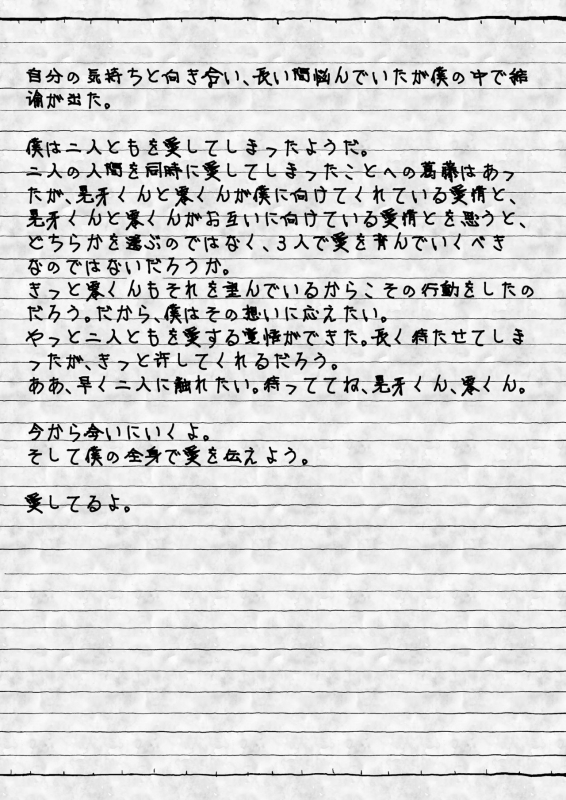 自分の気持ちと向き合い、長い間悩んでいたが僕の中で結
論が出た。
僕は二人ともを愛してしまったようだ。
二人の人間を同時に愛してしまったことへの葛藤はあっ
たが、晃牙くんと栗くんが僕に向けてくれている愛情と、
晃牙くんと栗くんがお互いに向けている愛情とを思うと、
どちらかを選ぶのではなく、3人で愛を育んでいくべき
なのではないだろうか。
きっと栗くんもそれを望んでいるからこその行動をしたの
だろう。だから、僕はその想いに応えたい。
やっと二人ともを愛する覚悟ができた。長く待たせてしま
ったが、きっと許してくれるだろう。
ああ、早く二人に触れたい。待っててね、晃牙くん、栗くん。
今から会いにいくよ。
そして僕の全身で愛を伝えよう。
愛してるよ。